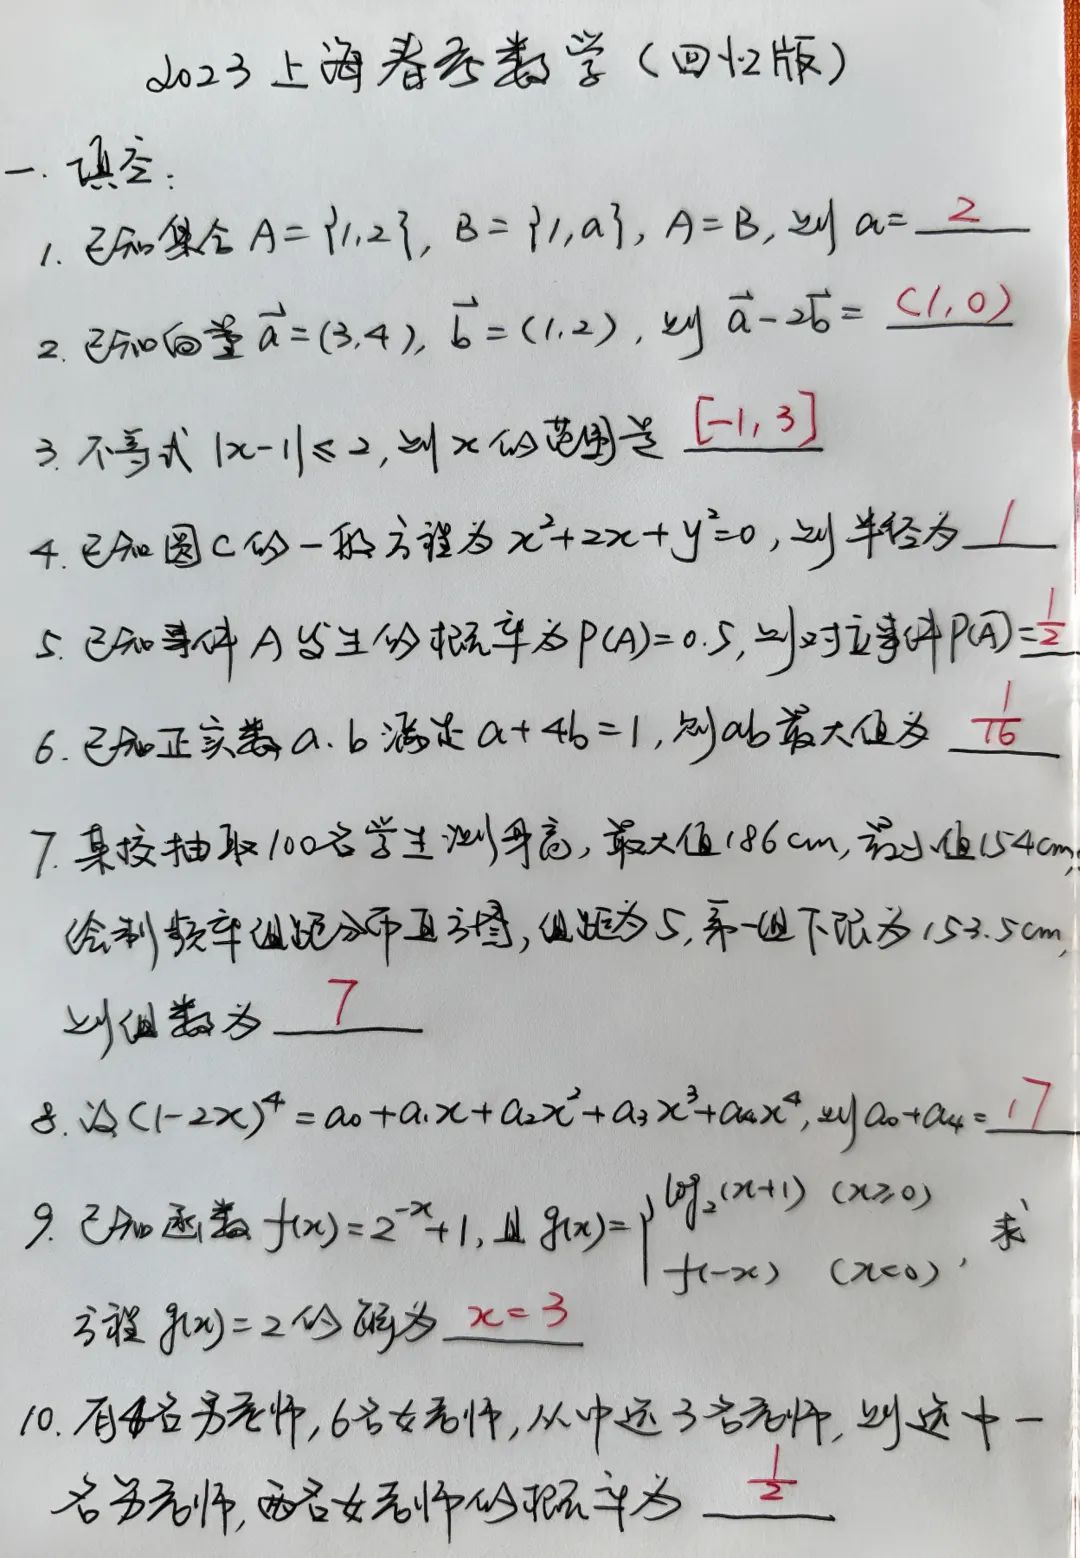 2023上海春考数学（回忆版）
一. 填空：
1. 已知集合 A={1,2}, B={1,a}, A=B, 则 a= 2
2. 已知向量 a⃗=(3,4), b⃗=(1,2), 则 a⃗-2b⃗= (1,0)
3. 不等式 |x-1|≤2, 则 x 的范围是 [-1,3]
4. 已知圆C的一般方程为 x²+2x+y²=0, 则半径为 1
5. 已知事件A发生的概率为P(A)=0.5, 则对立事件P(A̅)= 1/2
6. 已知正实数 a.b 满足 a+4b=1, 则ab最大值为 1/16
7. 某校抽取100名学生测身高, 最大值186cm, 最小值154cm,
绘制频率组距分布直方图, 组距为5, 第一组下限为153.5cm,
则组数为 7
8. 设(1-2x)⁴=a₀+a₁x+a₂x²+a₃x³+a₄x⁴, 则a₀+a₄= 17
9. 已知函数 f(x)=2⁻ˣ+1, 且 g(x)={log₂(x+1) (x≥0)
f(-x) (x<0), 求
方程 g(x)=2 的解为 x=3
10. 有4名男老师, 6名女老师, 从中选3名老师, 则选中一
名男老师, 两名女老师的概率为 1/2